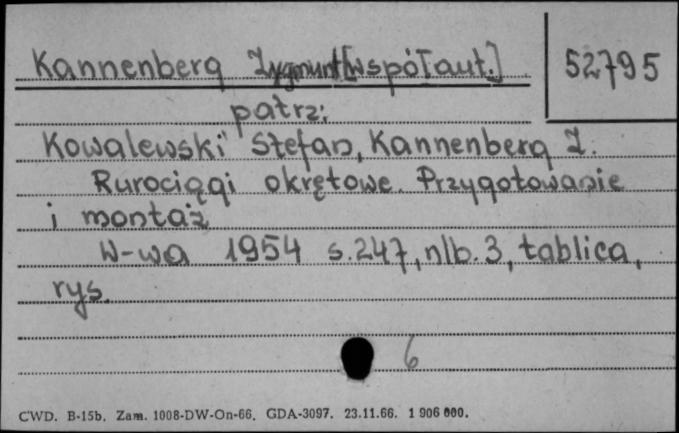 Kannenberg Zygmunt [współaut.]
52795
patrz:
Kowalewski Stefan, Kannenberg Z.
Rurociągi okrętowe. Przygotowanie
i montaż
W-wa 1954 s.247, nlb. 3, tablica,
rys.
6
CWD. B-15b. Zam. 1008-DW-On-66. GDA-3097. 23.11.66. 1 906 000.